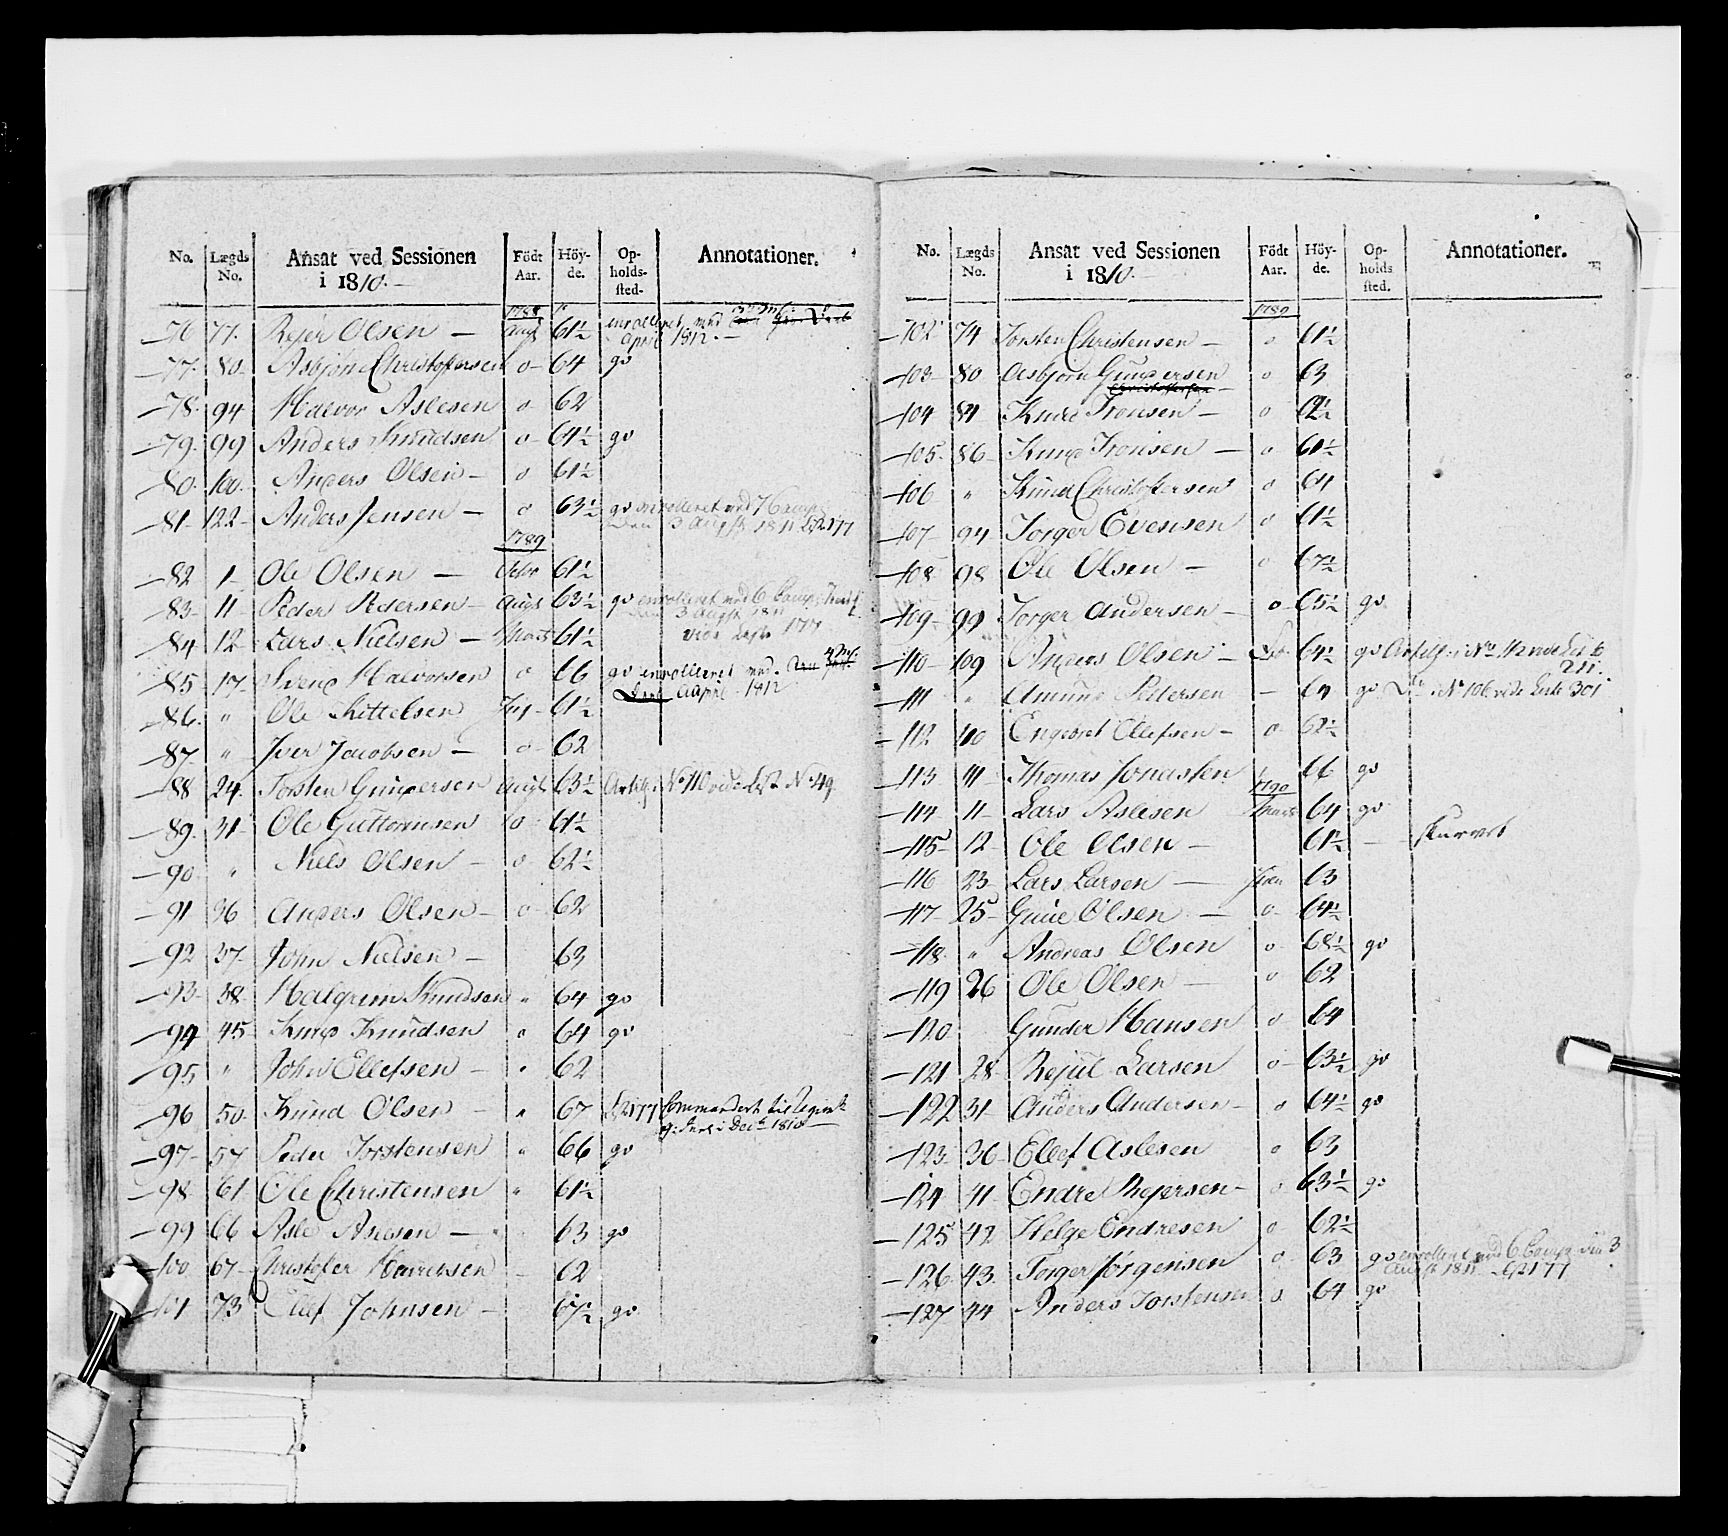 No. Lægds No. Ansat ved Sessionen i 1810. Födt Aar. Höyde. Opholdssted. Annotationer.
1788
76 77. Rejer Olsen — Aug 61½ enrolleret med
April 1812. —
77. 80 Asbjörn Christophersen o 64 go
78. 94 Halvor Aslesen o 62
79. 99 Anders Knudsen o 64½ go
80. 100. Anders Olsen — o 61½
81 122 Anders Jensen — o 63½ go enrolleret med 7 Comp
den 3 Augst 1811 177
1789
82 1 Ole Olsen — 61½
83 11 Peder Pedersen Augt 63½ go enrolleret med 6 Comp
den 3 Augst 1811
84 12 Lars Nielsen — Marts 61½ vide Liste 177
85 17 Svend Halvorsen o 66 go enrolleret med
April 1812
86. " Ole Kittelsen 61½
87 " Iver Jacobsen — o 62
88 24. Torsten Gundersen Augt 63½ Artilg. No 110 vide List No 249
89. 31 Ole Guttormsen o 61½
90 " Niels Olsen — o 62½
91 36 Anders Olsen — o 62
92 37 John Nielsen — 63
93 38 Halgrim Knudsen " 64 go
94 45 Knud Knudsen " 64 go
95 " John Ellefsen — " 62
96 50 Knud Olsen — " 67 177 Commandert til Regimt:
i Decr 1810 —
97 57 Peder Torstensen " 66 go
98 61 Ole Christensen " 61½
99 66 Asle Aslesen — 63 go
100 67 Christofer Halvorsen 62
101 73 Ellef Johnsen — 67½ go
No. Lægds No. Ansat ved Sessionen i 1810. Födt Aar. Höyde. Opholdssted. Annotationer.
1789
102 74 Torsten Christensen — o 61½
103 80 Asbjörn Gundersen o 63
Christophersen
104 84 Knud Tronsen — o 62½
105 86 Knud Tronsen — o 61½
106 " Knud Christofersen o 64
107 94 Torger Evensen o 61½
108 98 Ole Olsen — o 67½
109 99 Torger Andersen — o 65½ go
110 109 Anders Olsen — 64½ go Artilg: No 112 vide List
211.
111 " Amund Pedersen — 64 go No 106 vide Liste 301
112 110 Engebret Ellefsen — o 62½
113 111 Thomas 66 go
1790
114 11 Lars Aslesen Marts 64 go
115 12 Ole Olsen — 61½ — skurvet
116 23 Lars Larsen — 63
117 25 Gude Olsen — o 64½
118 " Andreas Olsen o 68½ go
119 26 Ole Olsen — o 62
120 Gunder Hansen o 64
121 28 Rejul Larsen o 63½ go
122 31 Anders Andersen — o 64½ go
123 36 Ellef Aslesen o 63
124 41 Endre Rejersen — o 63½ go
125 42 Helge Endresen o 62½
126 43 Torger Jörgensen o 63 go enrolleret med 6 Comp den 3
Augst 1811 177
127 44 Anders Torstensen o 64 go